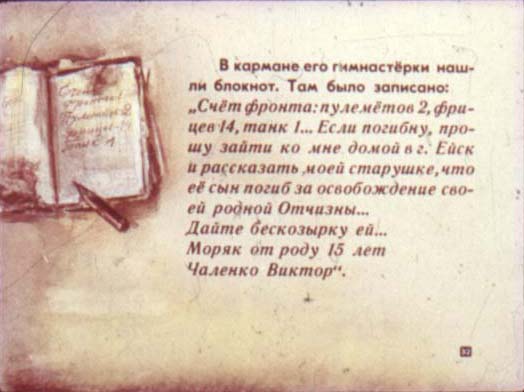 В кармане его гимнастёрки наш-
ли блокнот. Там было записано:
„Счёт фронта: пулемётов 2, фри-
цев 14, танк 1... Если погибну, про-
шу зайти ко мне домой в г. Ейск
и рассказать моей старушке, что
её сын погиб за освобождение сво-
ей родной Отчизны...
Дайте бескозырку ей...
Моряк от роду 15 лет
Чаленко Виктор“.
32